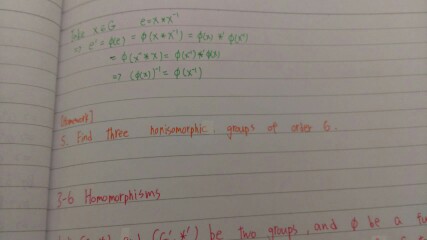 Take x∈G e=x*x⁻¹
⇒ e' = φ(e) = φ(x*x⁻¹) = φ(x) *' φ(x⁻¹)
= φ(x⁻¹*x) = φ(x⁻¹) *' φ(x)
⇒ (φ(x))⁻¹ = φ(x⁻¹)
[Homework]
5. Find three nonisomorphic groups of order 6.
3-6 Homomorphisms
and (G', *') be two groups, and φ be a fu